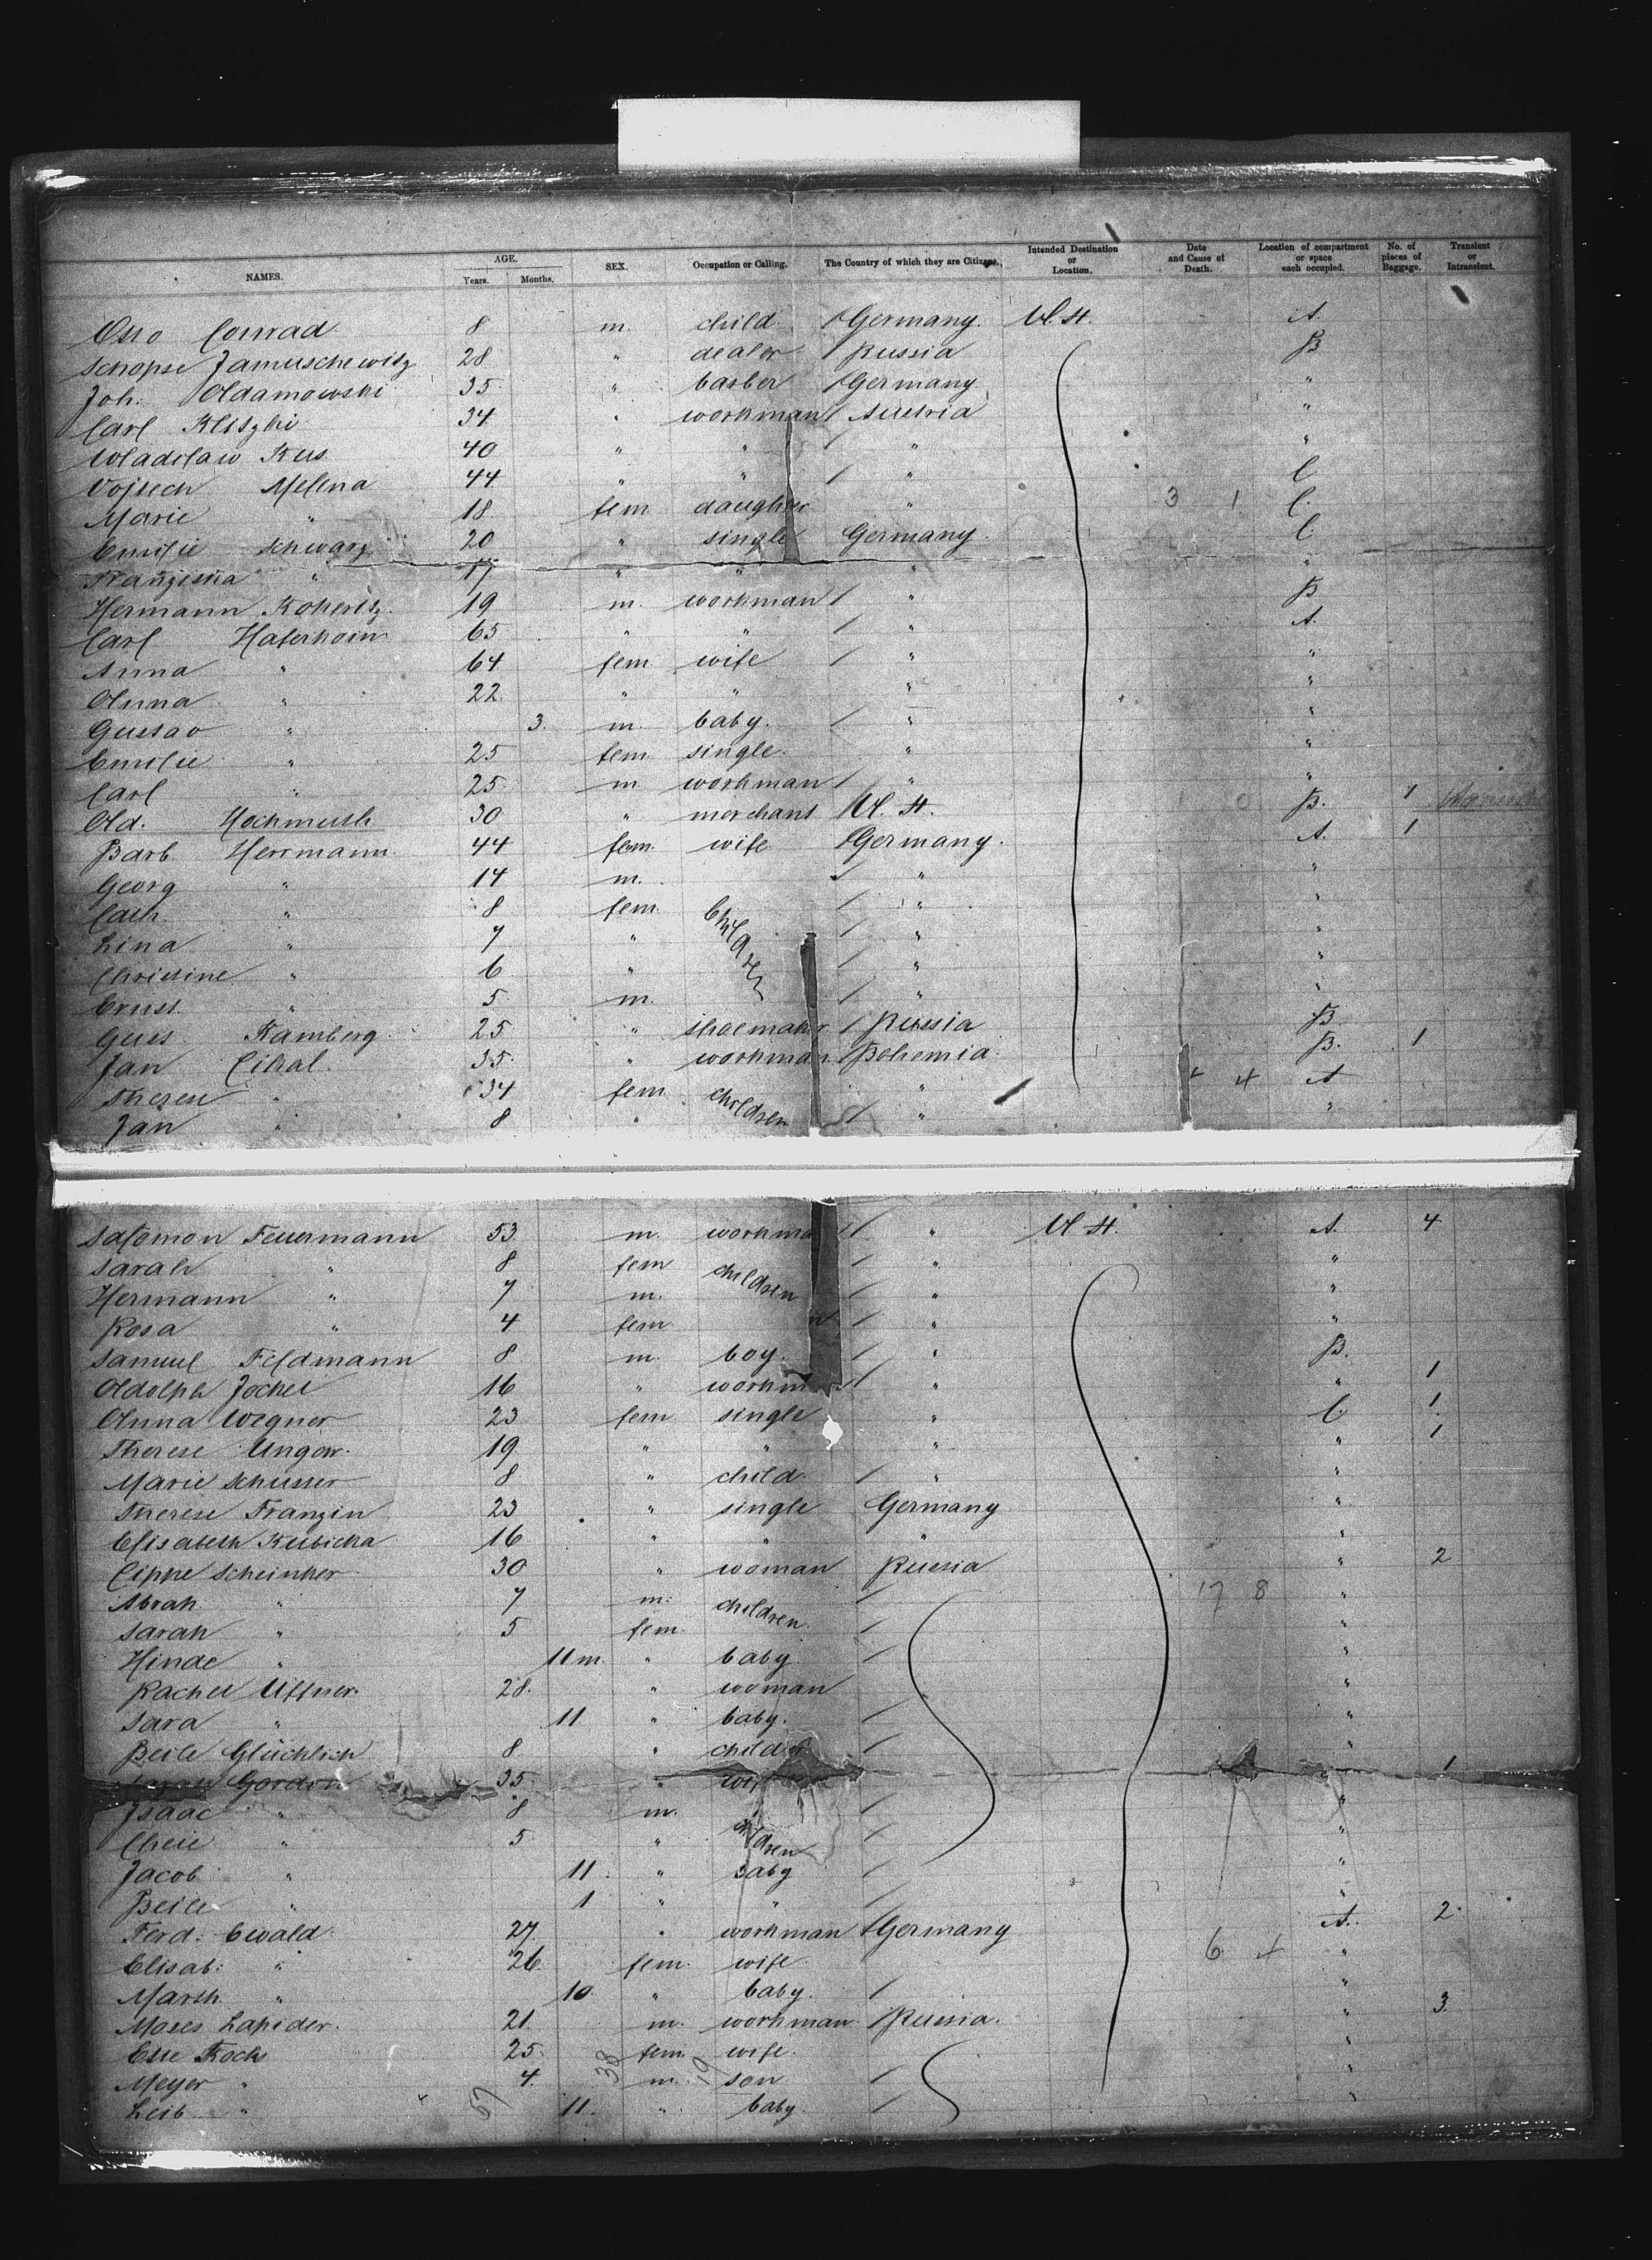 NAMES. AGE. Years. Months. SEX. Occupation or Calling. The Country of which they are Citizens. Intended Destination or Location. Date and Cause of Death. Location of compartment or space each occupied. No. of pieces of Baggage. Transient or Intransient.
Otto Conrad 8 m. child Germany. U. St. A.
Schopse Januschewitz 28 " dealer Russia B
Joh. Adamowski 35 " barber Germany "
Carl 34 " workman Austria "
Wladislaw Kus 40 " " " "
Vojtech Melena 44 " " " C
Marie " 18 fem daughter " 3 1 C.
Emilie Schwarz 20 " single Germany. C
Franziska " 17 " " " "
Hermann 19 m. workman " B
Carl Haferkorn 65 " " " A.
Anna " 64 fem wife " "
Anna " 22 " " " "
Gustav " 3. m. baby. " "
Emilie " 25 fem single. " "
Carl " 25 m workman " "
Ad. Hochmuth 30 " merchant U. St. 0 B. 1
Barb Herrmann 44 fem. wife Germany. A. 1
Georg " 14 m. " "
Cath " 8 fem children " "
Lina " 7 " " "
Christine " 6 " " "
Ernst " 5 m. " "
Gust Kamberg 25 " shoemaker Russia B
Jan Cihal 35. " workman Bohemia B. 1
Therese " 34 fem " 4 A
Jan " 8 " children " "
Salomon Feuermann 53 m. workman " U. St. A. 4
Sarah " 8 fem children " "
Hermann " 7 m. " "
Rosa " 4 fem " "
Samuel Feldmann 8 m. boy. " B.
Adolph Jockel 16 " workman " " 1
Anna Wegner 23 fem single " C. 1
Therese Ungar 19 " " " " 1
Marie Schusser 8 " child " "
Therese Franzin 23 " single Germany "
Elisabeth Kubicka 16 " " " "
Scheinker 30 " woman Russia " 2
Abrah " 7 m. children 17 8 "
Sarah " 5 fem. "
Hinde " 11 m. " baby "
Rachel Uffner 28. " woman "
Sara " 11 " baby. "
Beile Glücklich 8 " child "
Gordon 35. " wife 1
Isaac " 8 m. children "
" 5 "
Jacob " 11. " baby "
Beile " 1 " " "
Ferd. Ewald 27 " workman Germany A. 2.
Elisab. " 26. fem. wife 6 4 "
Marth " 10 " baby. "
Moses Lapider. 21. m. workman Russia. " 3.
Este Kock 25. fem. wife. "
Meyer " 4. m. son "
Leib " 11. " baby "
57 38 19